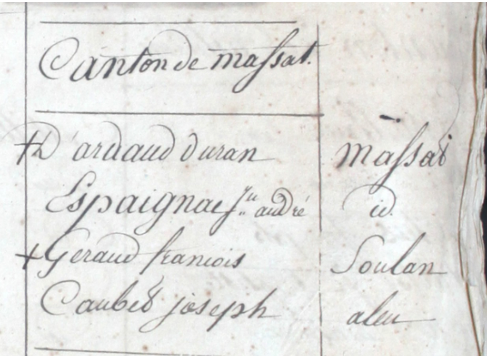 Canton de massat.
+ D'ardaud duran massat
Espaignac Jn andré id
+ Geraud francois Soulan
Caubet joseph aleu